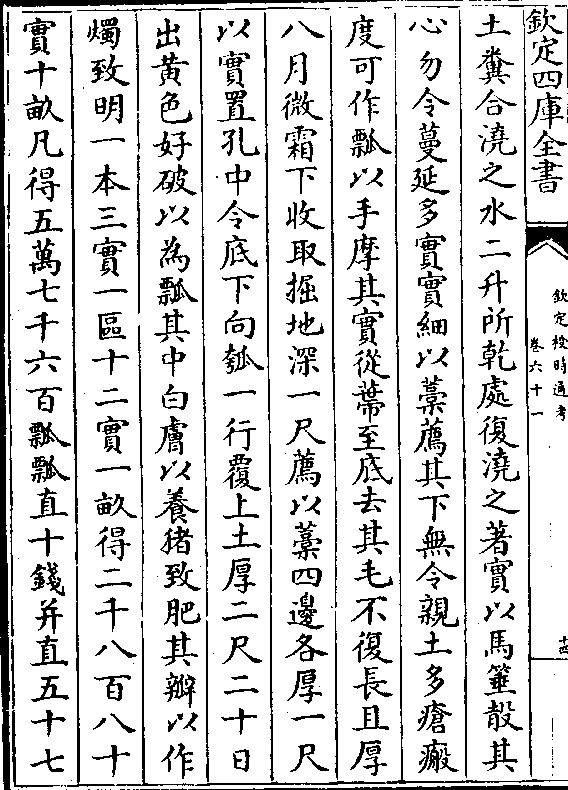 欽定四庫全書
欽定授時通考
卷六十一
十四
土糞合澆之水二升所乾處復澆之著實以馬箠㪣其
心勿令蔓延多實實細以藁薦其下無令親土多瘡瘢
度可作瓢以手摩其實從蔕至底去其毛不復長且厚
八月微霜下收取掘地深一尺薦以藁四邊各厚一尺
以實置孔中令底下向瓠一行覆上土厚二尺二十日
出黃色好破以為瓢其中白膚以養猪致肥其瓣以作
燭致明一本三實一區十二實一畝得二千八百八十
實十畝凡得五萬七千六百瓢瓢直十錢并直五十七